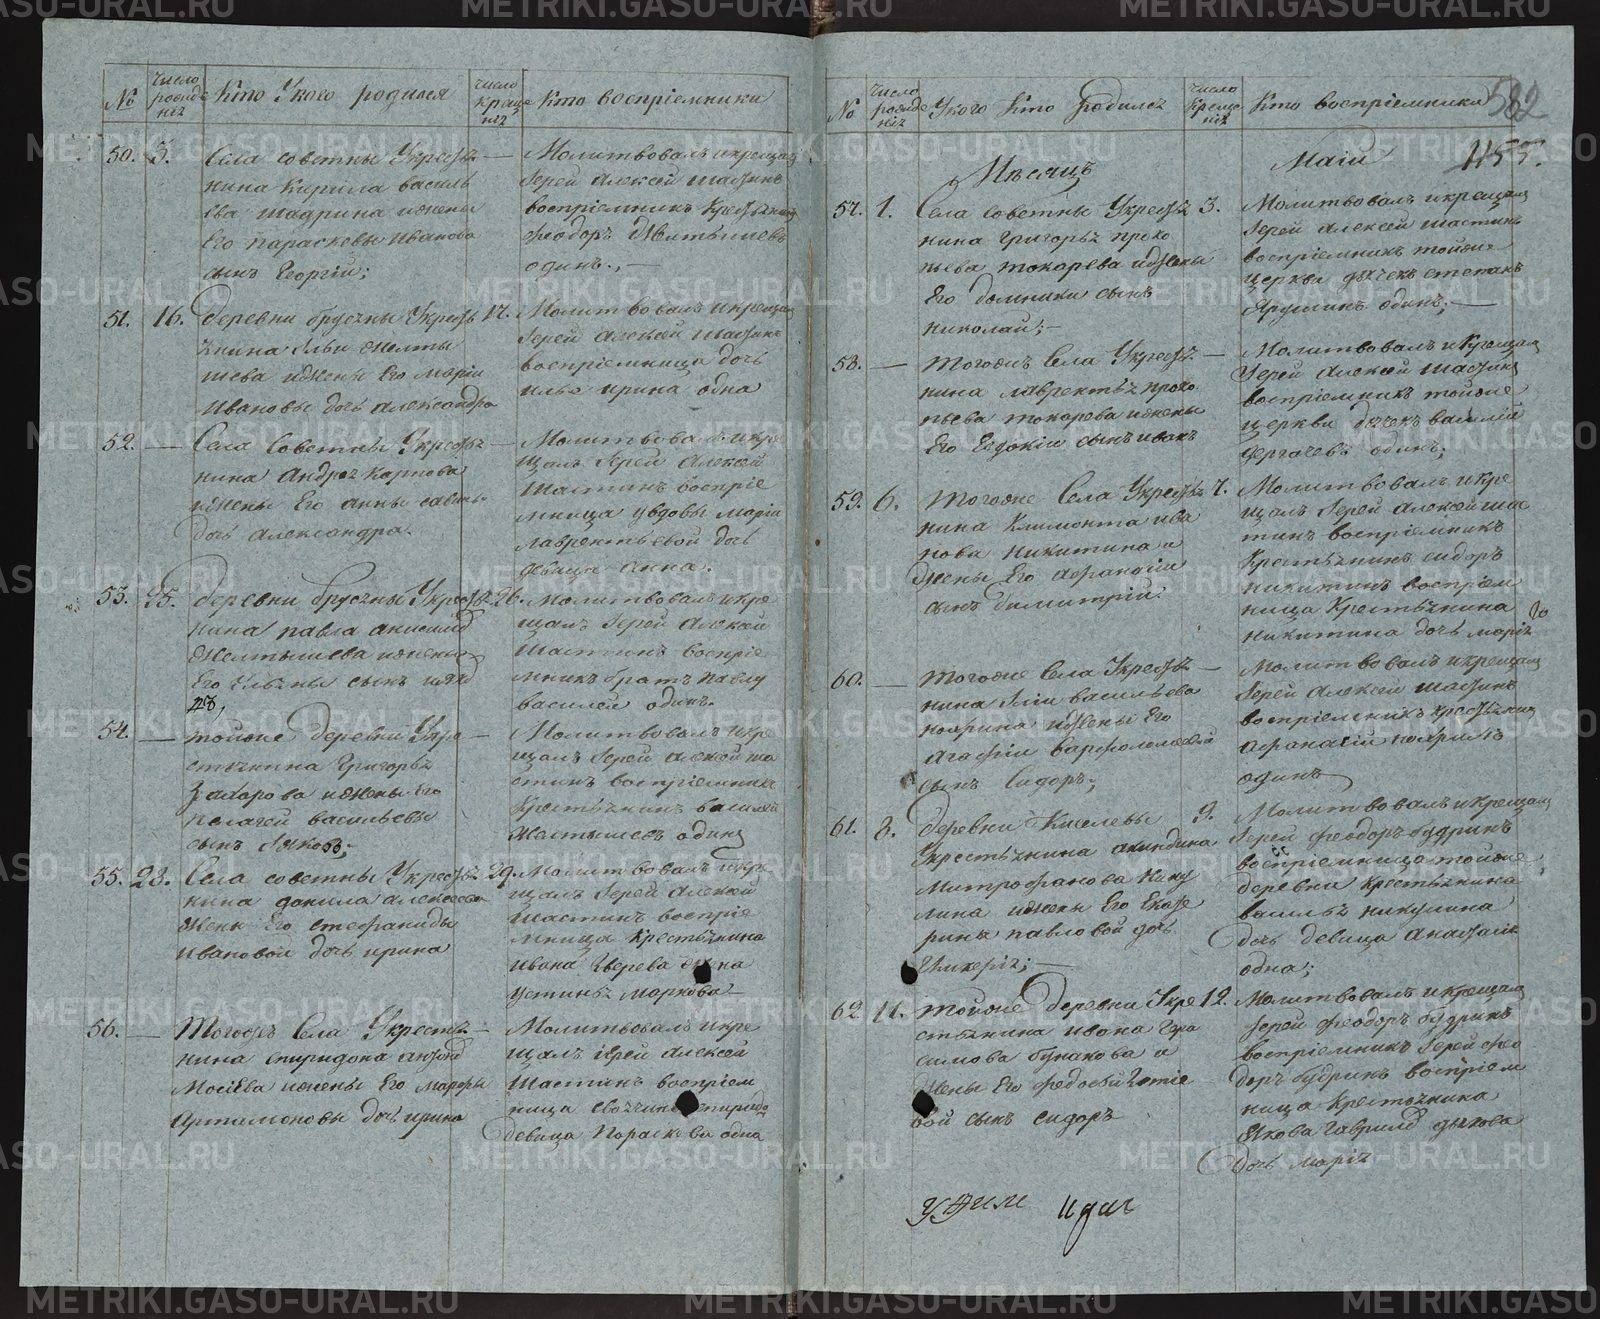 №
число рожде нія
Кто Укого родился
число краще нія
Кто воспріемники
50. 3. Села советны Укресть —
нина Кирила василь
ева шадрина ижены
Его параскевы Иванова
сынъ Георгій;
Молитвовалъ икрещал
Іерей Алексѣй шастинъ
воспріемникъ Крестьянинъ
феодоръ Желтышевъ
одинъ.
51. 16. деревни брусяны Укресть 17.
янина Ильи Желты
шева ижены Его маріи
Ивановы дочь александра
Молитвовалъ икрещал
Іерей Алексѣй шастинъ
воспріемница дочь
илье ирина одна
52. — Села Советны Укресть —
нина Андрея карпова
ижены Его анны савиной
дочь Александра.
Молитвовалъ икре
щалъ Іерей Алексѣй
Шастинъ воспріе
мница увдовы маріи
лаврентьевой дочь
девица анна.
53. 25. деревни брусяны Укресть 26.
нина павла анисимо
Желтышева ижены
Его ульяны сынъ
Молитвовалъ икре
щалъ Іерей Алексѣй
Шастинъ воспріе
мникъ братъ павлу
василей одинъ.
54. — тойже деревни Укре —
стьянина Григорья
Захарова ижены Его
пелагеи васильевы
сынъ Яковъ;
Молитвовалъ икре
щалъ Іерей Алексѣй ша
стинъ воспріемникъ
Крестьянинъ василей
Желтышевъ одинъ
55. 28. Села советны Укресть 29.
нина данила алексеева
Жены Его стефаниды
ивановой дочь ирина
Молитвовалъ икре
щалъ Іерей Алексѣй
шастинъ воспріе
мница Крестьянина
ивана Зверева Жена
устинья маркова —
56. — Тогожъ Села Укресть —
нина спиридона
Мосѣева ижены Его марфы
Артамоновы дочь ирина
Молитвовалъ икре
щалъ іерей Алексѣй
Шастинъ воспріем
ница
девица Параскева одна
№
число рожде нія
Укого Кто родился
число Креще нія
Кто воспріемники
582
455.
Мѣсяцъ
Маій
57. 1. Села Советны Укресть 3.
нина Григорья проко
пьева токарева ижены
Его домники сынъ
николай;
Молитвовалъ икрещалъ
Іерей Алексѣй шастинъ
воспріемникъ тойже
церкви дьячекъ степанъ
Ярушинъ одинъ;
58. — тогожъ Села Укресть —
нина лаврентья проко
пьева токарева ижены
Его Евдокіи сынъ иванъ
Молитвовалъ икрещалъ
Іерей Алексѣй шастинъ
воспріемникъ тойже
церкви дьячекъ василій
дергачевъ одинъ;
59. 6. тогоже Села Укресть 7.
нина Климонта ива
нова Никитина и
Жены Его Афанасіи
сынъ димитрій.
Молитвовалъ икре
щалъ Іерей Алексѣй ша
тинъ воспріемникъ
Крестьянинъ сидоръ
никитинъ воспріем
ница Крестьянина
никитина дочь марія
60. — тогоже Села Укресть —
нина Иліи васильева
ноярина ижены Его
Агафіи варфоломеевой
сынъ Сидоръ;
Молитвовалъ икрещалъ
Іерей Алексѣй шастинъ
воспріемникъ крестьянинъ
Афанасій нояринъ
одинъ
61. 8. деревни Киселевы 9.
Укрестьянина акиндина
Митрофанова Нику
лина ижены Его Екате
рины павловой дочь
Гликерія;
Молитвовалъ икрещалъ
Іерей феодоръ будринъ
воспріемница тойже
деревни крестьянина
василья никулина
дочь девица анастасія
одна;
62. 11. тойже деревни Укре 12.
стьянина ивана гера
симова бунакова и
Жены Его федосьи
вой сынъ сидоръ
Молитвовалъ икрещалъ
Іерей феодоръ будринъ
воспріемникъ Іерей фео
доръ будринъ воспріем
ница Крестьянина
Якова дьякова
дочь марія